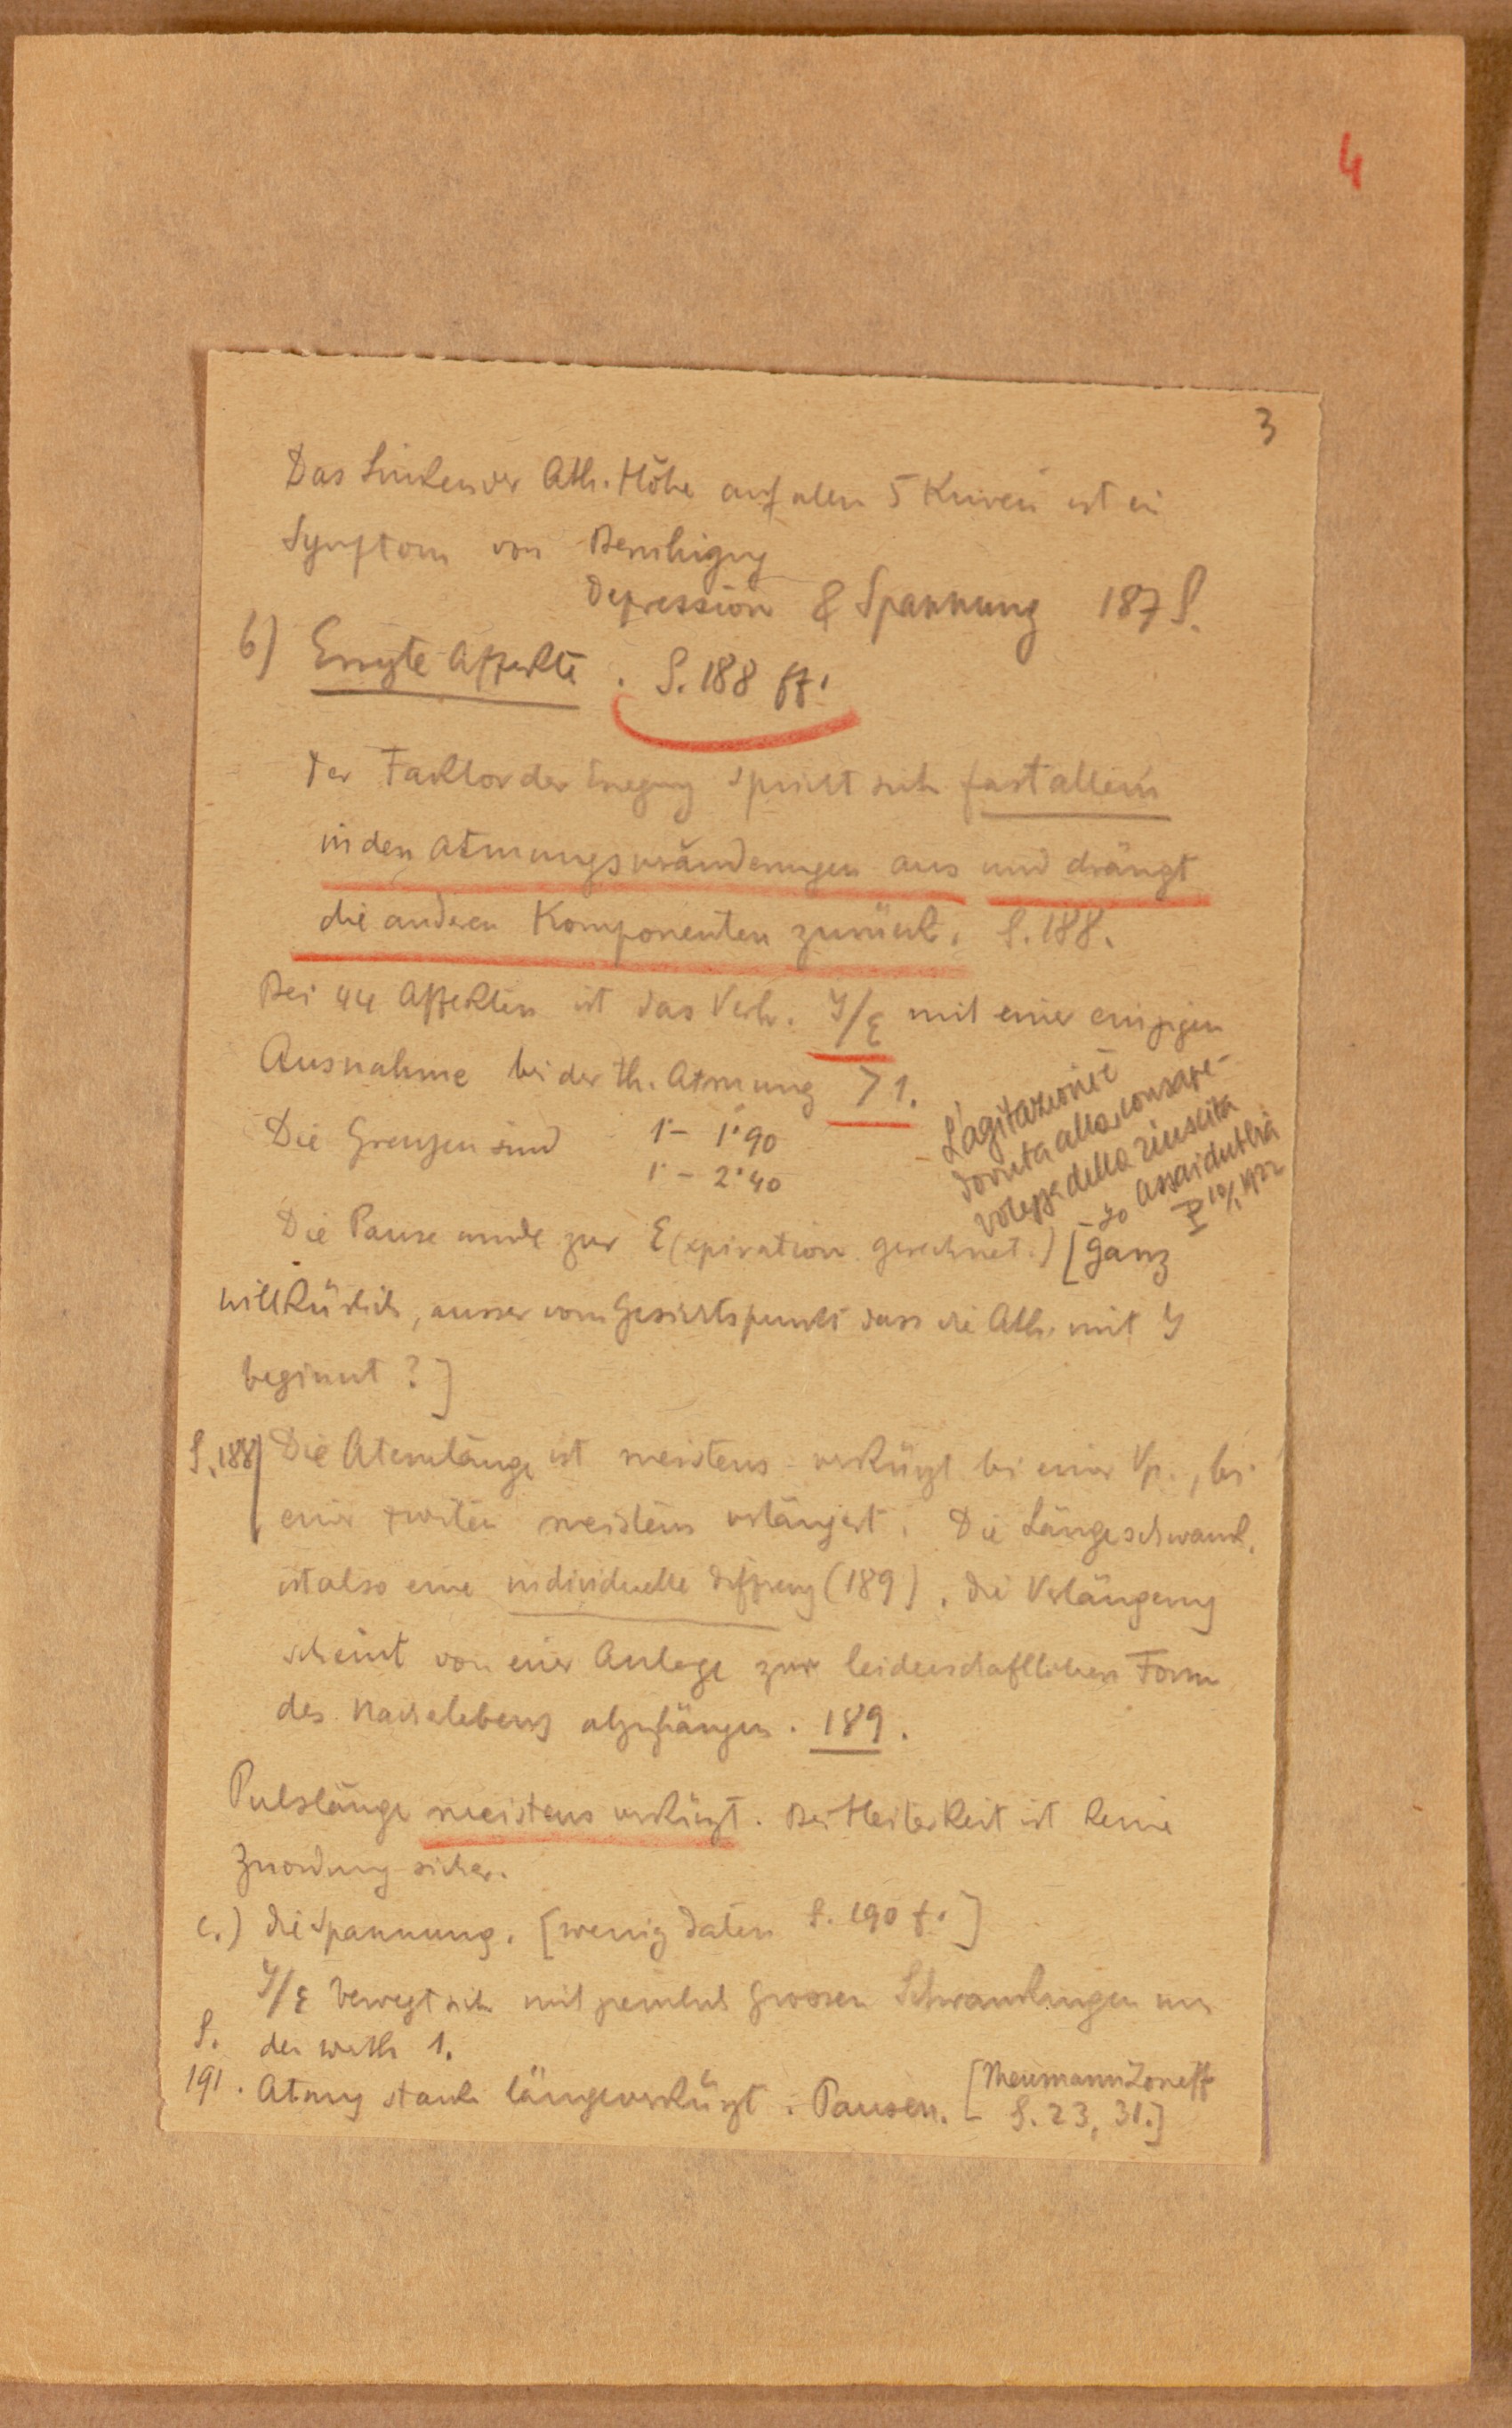 4
3
Das Sinken der Ath. Höhe auf allen 5 Kurven ist ein
Symptom von Beruhigung
Depression & Spannung 187 S.
b) Erregte Affekte. S. 188 ff.
Der Faktor der Erregung spricht sich fast allein
in den Atmungsveränderungen aus und drängt
die anderen Komponenten zurück. S. 188.
Bei 44 Affekten ist das Verh. J/E mit einer einzigen
Ausnahme bei der th. Atmung > 1.
Die Grenzen sind 1·– 1·90
1·– 2·40
L'agitazione è
dovuta alla consape-
volezza della riuscita
assai dubbia
10/1 1922
Die Pause wurde zur E(xpiration gerechnet.) [ganz
willkürlich, ausser vom Gesichtspunkt dass die Ath. mit J
beginnt?]
S. 188 Die Atemlänge ist meistens verkürzt bei einer Vp., bei
einer zweiten meistens verlängert. Die Längeschwank.
ist also eine individuelle Differenz (189). Die Verlängerung
scheint von einer Anlage zur leidenschaftlichen Form
des Nacherlebens abzuhängen. 189.
Pulslänge meistens verkürzt. Bei Heiterkeit ist keine
Zuordnung sicher.
c.) Die Spannung. [wenig Daten S. 190 f.]
J/E bewegt sich mit ziemlich grossen Schwankungen um
S. den Werth 1.
191. Atmung stark längeverkürzt. Pausen. [Neumann Zoneff
S. 23, 31.]